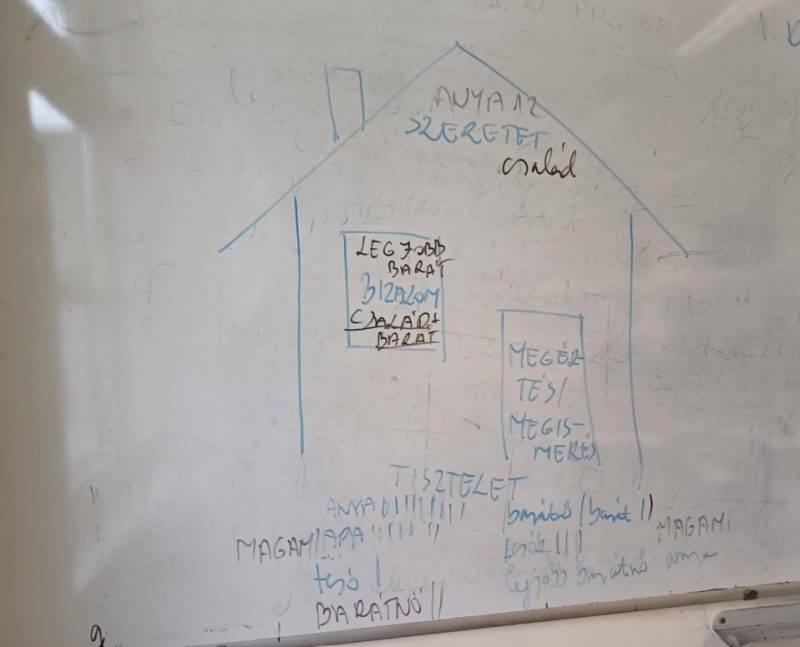 ANYA 12
SZERETET
család
LEGJOBB
BARÁT
BIZALOM
CSALÁD+
BARÁT
MEGÉR-
TÉS/
MEGIS-
MERÉS
TISZTELET
ANYA ||||||||| barátnő / barát ||
MAGAM | APA |||||| MAGAM
tesó |
legjobb barátnő anya
BARÁTNŐ ||